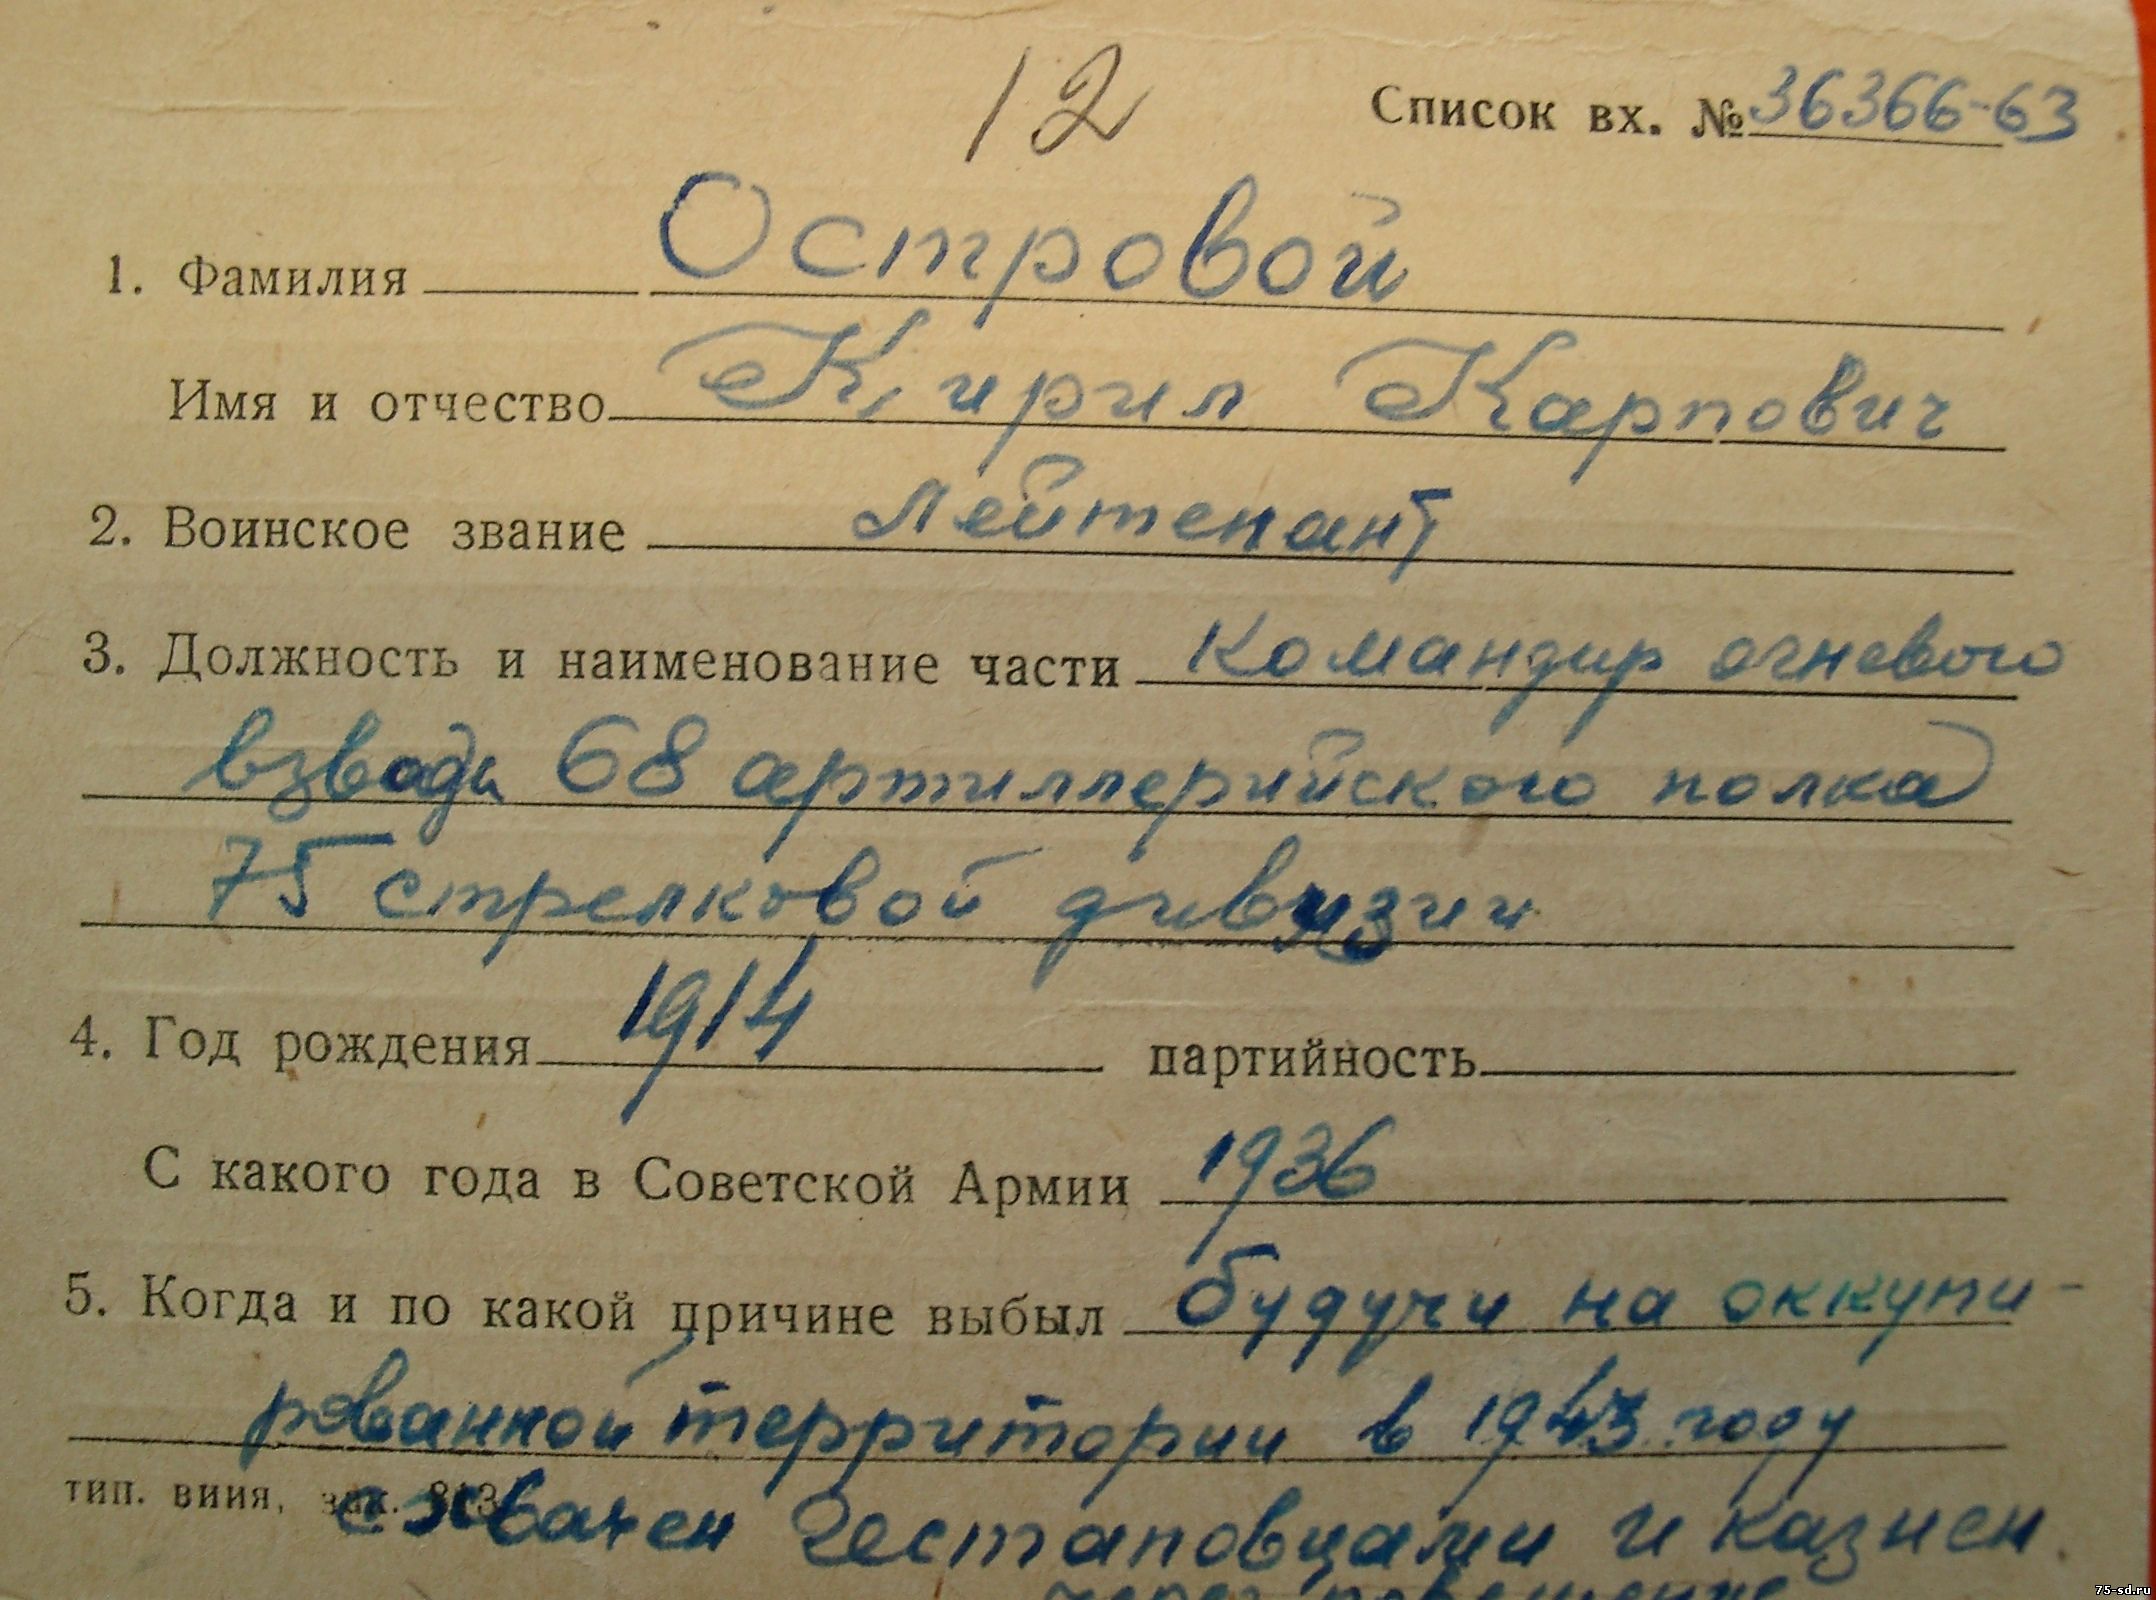 12
Список вх. № 36366-63
1. Фамилия Островой
Имя и отчество Кирил Карпович
2. Воинское звание лейтенант
3. Должность и наименование части командир огневого
взвода 68 артиллерийского полка
75 стрелковой дивизии
4. Год рождения 1914 партийность
С какого года в Советской Армии 1936
5. Когда и по какой причине выбыл будучи на оккупи-
рованной территории в 1943 году
тип. вийя, зак. 813
схвачен гестаповцами и казнен
через повешение
75-sd.ru